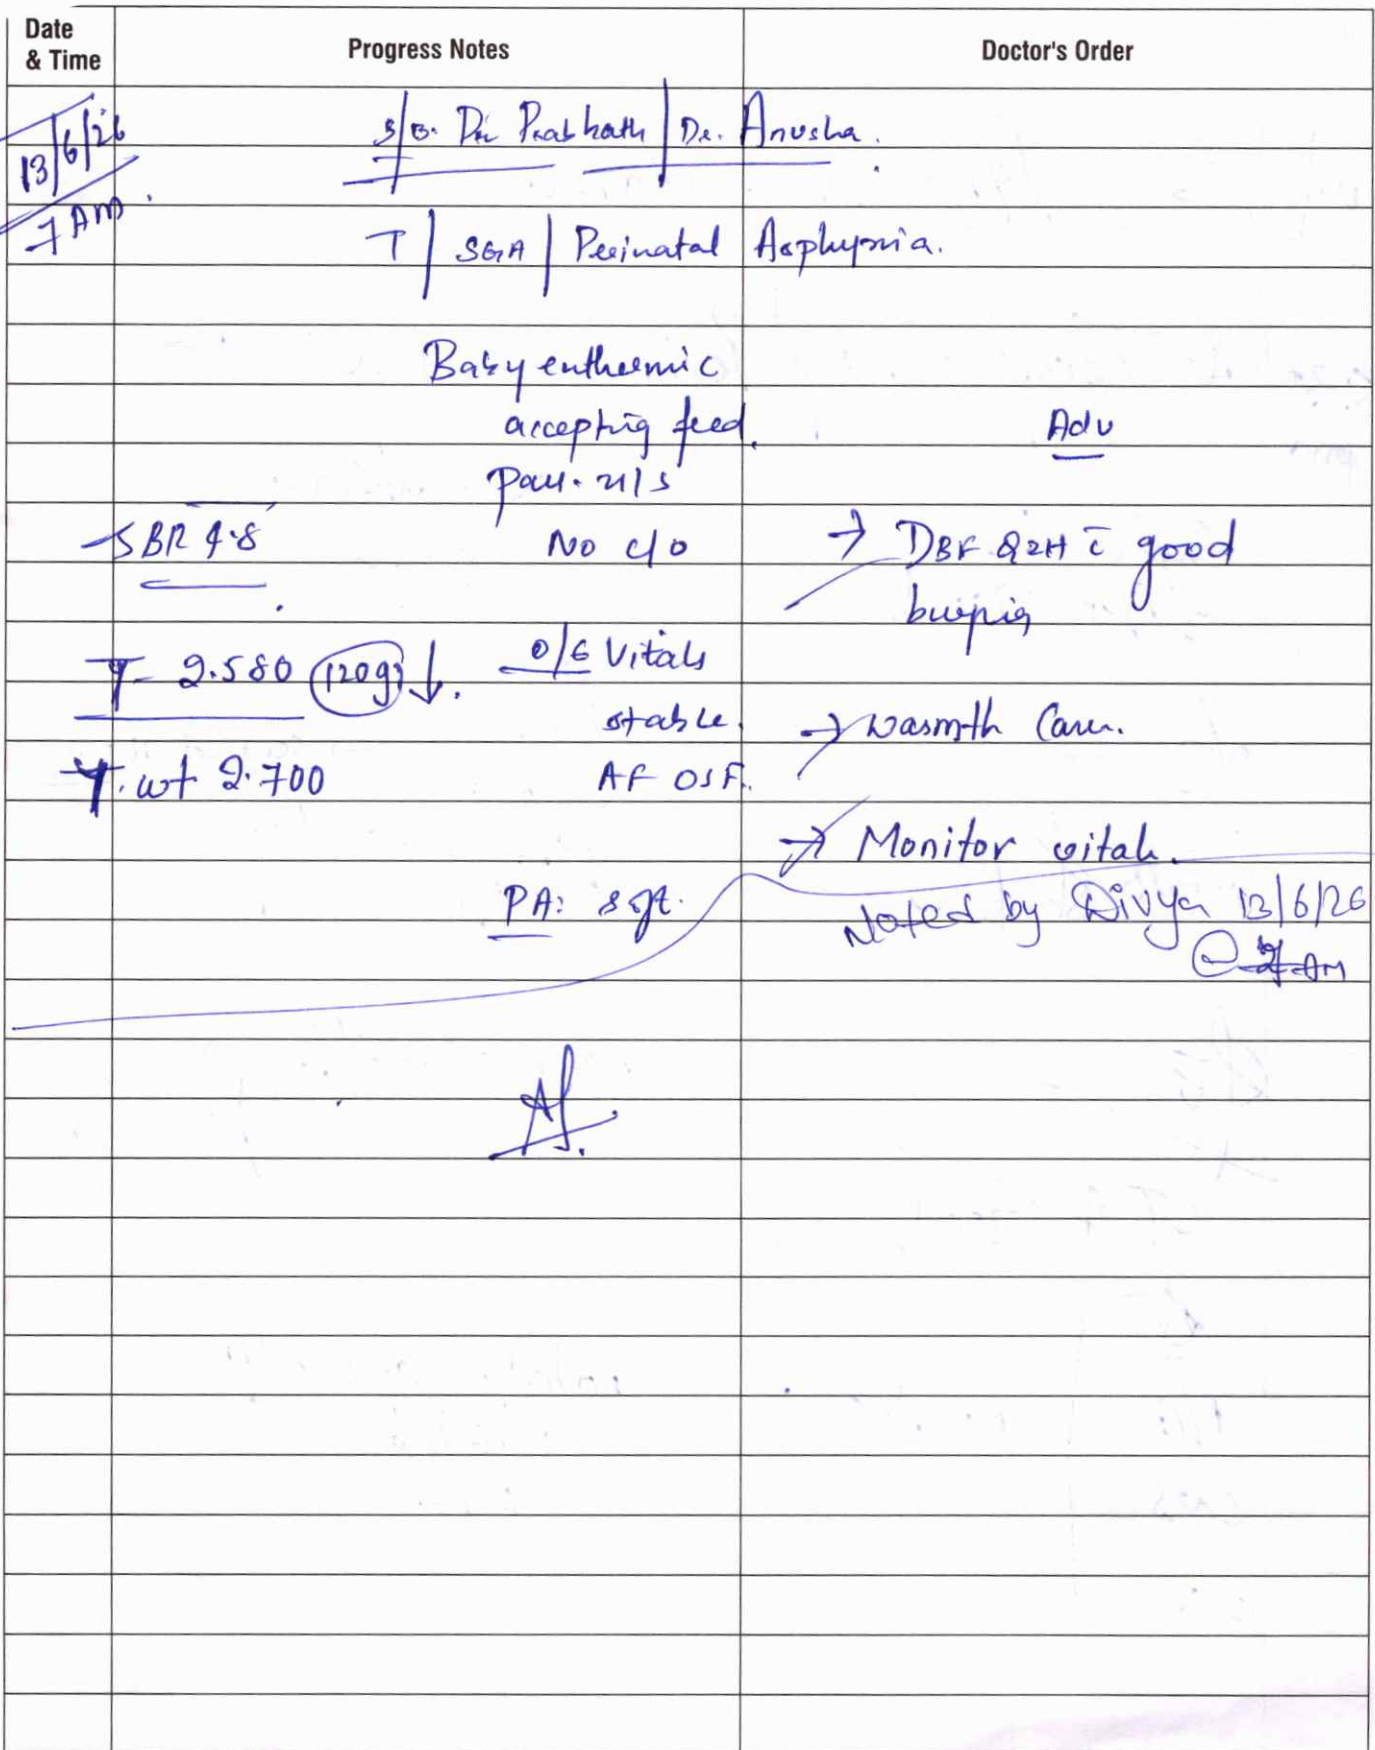 Date & Time Progress Notes Doctor's Order
13/6/26
7 AM.
S/B. Dr. Prabhath / Dr. Anusha.
T / SGA / Perinatal Asphyxia.
Baby euthermic
accepting feed.
Adv
Pass. u/s
SBR 9.8 No c/o → DBF Q2H c̄ good
burping
T- 2.580 (120g) ↓. O/E Vitals
stable. → warmth Care.
Y. wt 2.700 AF OSF.
→ Monitor vitals.
PA: soft. Noted by Divya 13/6/26
@ 7 AM